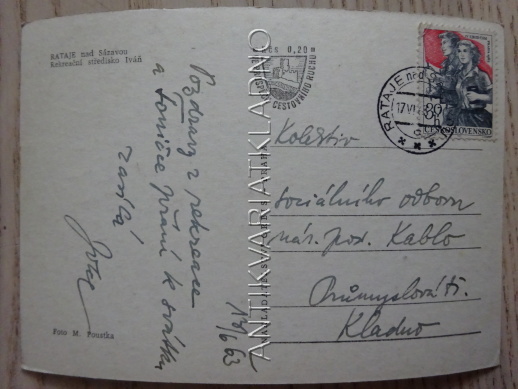 RATAJE nad Sázavou
Rekreační středisko Iváň
Pozdravy z rekreace
a Toničce přání k svátku
zasílá
17/6 63
Foto M. Poustka
ANTIKVARIATKLADNO
0,20
CESTOVNÍHO RUCHU
RATAJE nad
17.VI.
ČESKOSLOVENSKO
Kolektiv
sociálního odboru
nár. pod. Kablo
Průmyslová tř.
Kladno